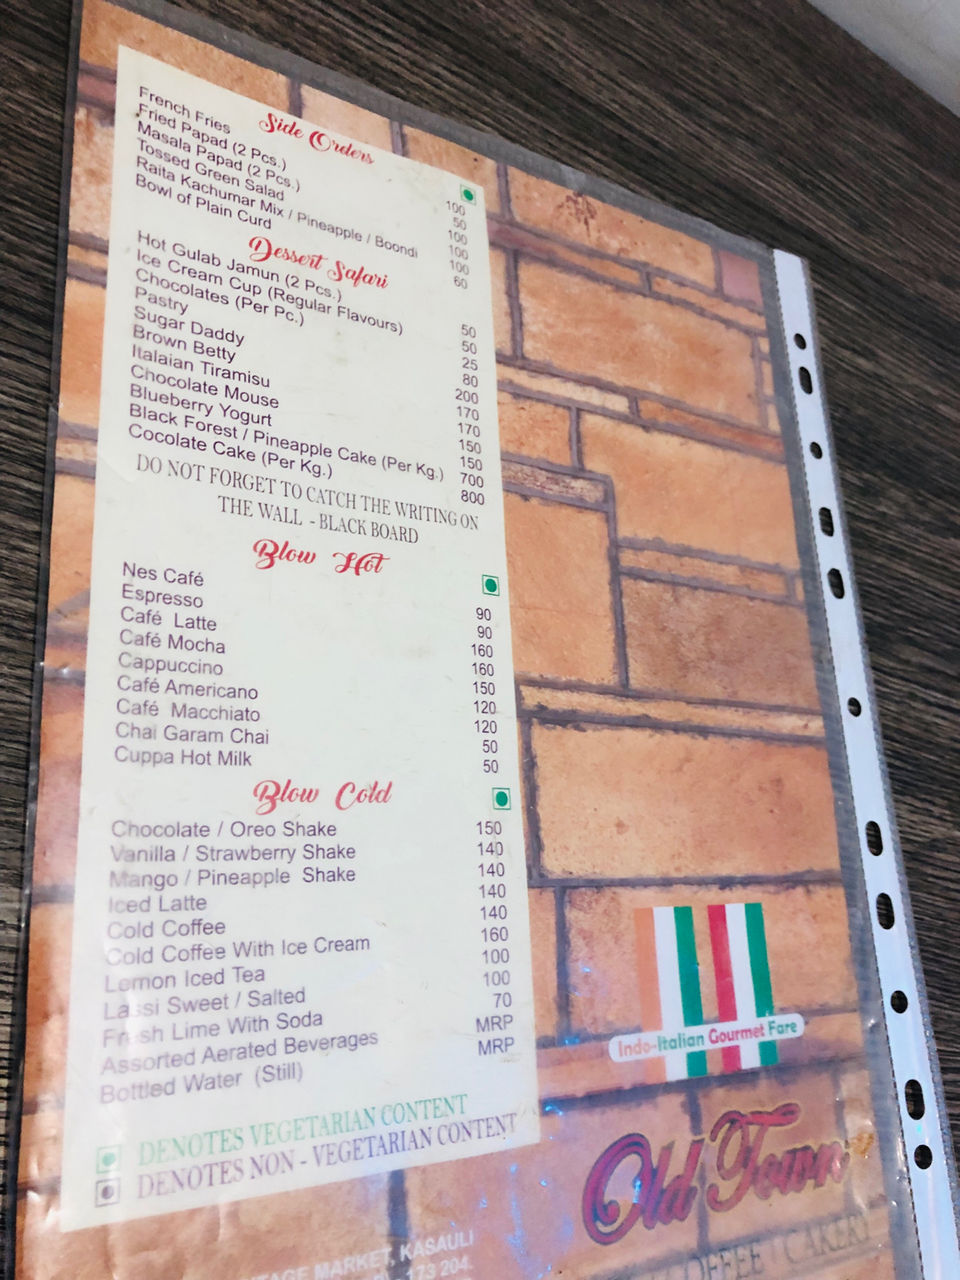 Side Orders
French Fries 100
Fried Papad (2 Pcs.) 50
Masala Papad (2 Pcs.) 100
Tossed Green Salad 100
Raita Kachumar Mix / Pineapple / Boondi 100
Bowl of Plain Curd 60
Dessert Safari
Hot Gulab Jamun (2 Pcs.) 50
Ice Cream Cup (Regular Flavours) 50
Chocolates (Per Pc.) 25
Pastry 80
Sugar Daddy 200
Brown Betty 170
Italaian Tiramisu 170
Chocolate Mouse 150
Blueberry Yogurt 150
Black Forest / Pineapple Cake (Per Kg.) 700
Cocolate Cake (Per Kg.) 800
DO NOT FORGET TO CATCH THE WRITING ON
THE WALL - BLACK BOARD
Blow Hot
Nes Café 90
Espresso 90
Café Latte 160
Café Mocha 160
Cappuccino 150
Café Americano 120
Café Macchiato 120
Chai Garam Chai 50
Cuppa Hot Milk 50
Blow Cold
Chocolate / Oreo Shake 150
Vanilla / Strawberry Shake 140
Mango / Pineapple Shake 140
Iced Latte 140
Cold Coffee 140
Cold Coffee With Ice Cream 160
Lemon Iced Tea 100
Lassi Sweet / Salted 100
Fresh Lime With Soda 70
Assorted Aerated Beverages MRP
Bottled Water (Still) MRP
DENOTES VEGETARIAN CONTENT
DENOTES NON - VEGETARIAN CONTENT
Indo-Italian Gourmet Fare
Old Town
MARKET, KASAULI
173 204.